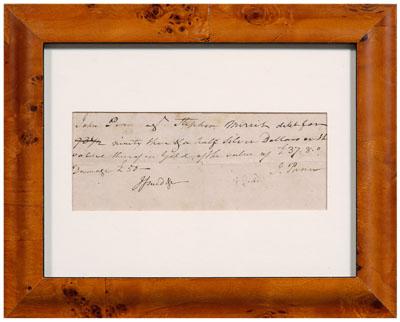 John Penn agst Stephen Merritt debt for
ninety three & a half Silver Dollars or the
value thereof in Gold, of the value of £37.8.0
Damage £50
J. Penn